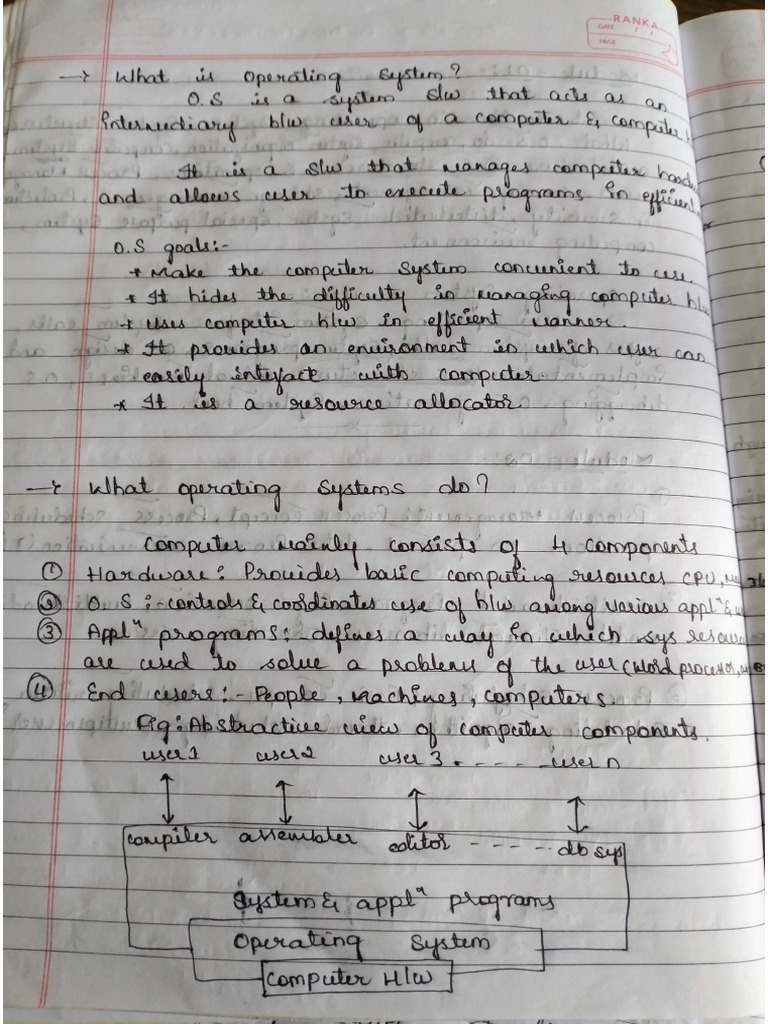 RANKA
DATE / /
PAGE
→ What is operating system?
O.S is a system S/w that acts as an
intermediary b/w user of a computer & computer
It is a S/w that manages computer
and allows user to execute programs in efficient
O.S goals:-
* Make the computer system convenient to use.
* It hides the difficulty in managing computer h/w
* Uses computer h/w in efficient manner.
* It provides an environment in which user can
easily interface with computer.
* It is a resource allocator.
→ What operating systems do?
Computer mainly consists of 4 components
① Hardware: Provides basic computing resources CPU,
② O.S:- controls & coordinates use of h/w among various applⁿ &
③ Applⁿ programs:- defines a way in which sys
are used to solve a problems of the user (word processor,
④ End users:- People, machines, computers.
Fig: Abstractive view of computer components.
user 1 user 2 user 3 . - - - - . user n
compiler assembler editor - - - - . db sys
System & applⁿ programs
Operating System
Computer H/W